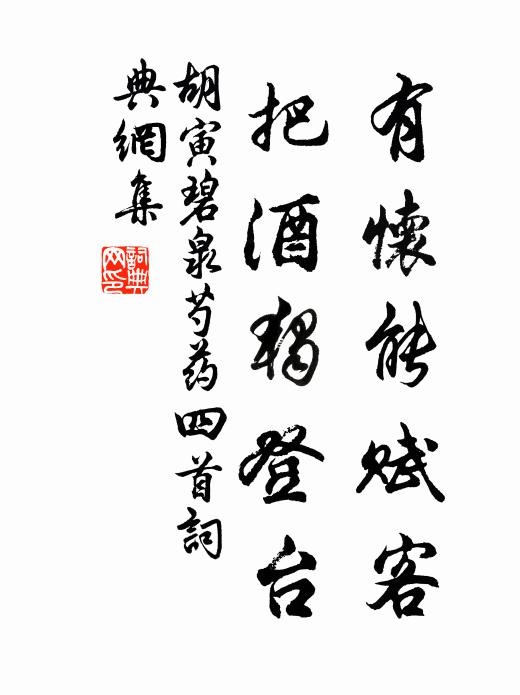 有懷能赋客
把酒独登台
胡寅碧泉芍葯四首詞
典網集
詞典
网印